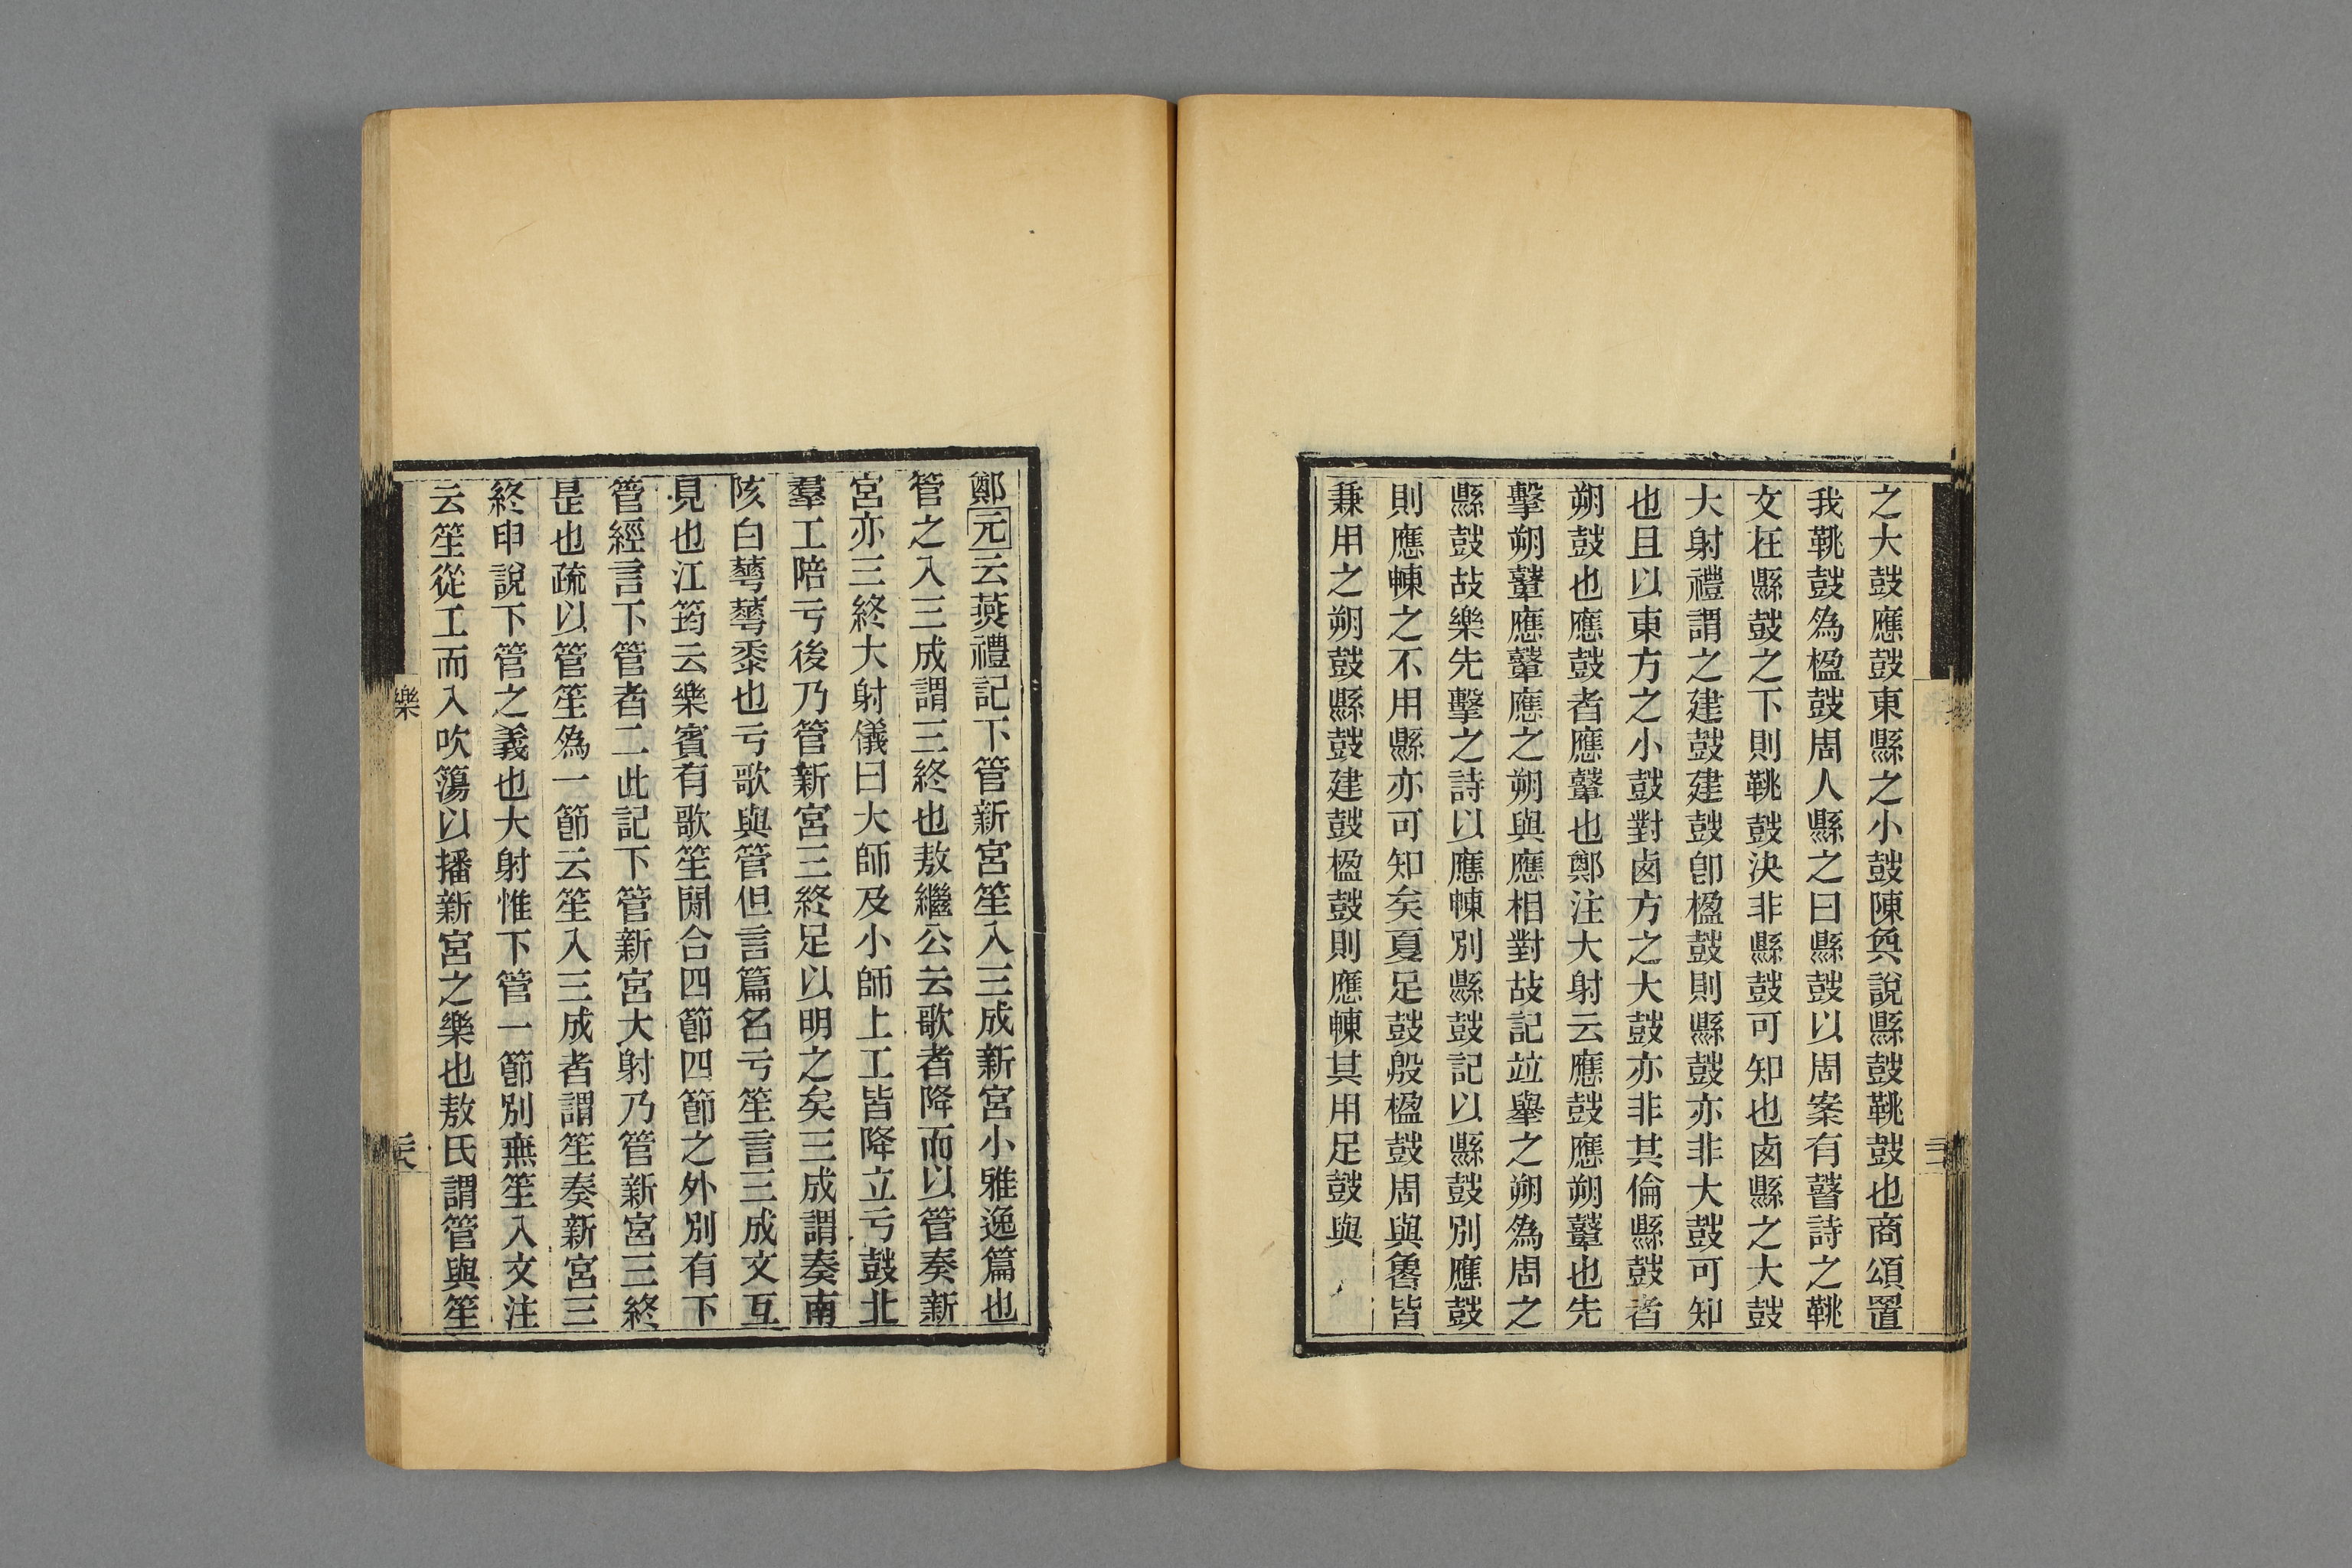 之大鼓應鼓東縣之小鼓陳奐說縣鼓鞉鼓也商頌置
我鞉鼓為楹鼓周人縣之曰縣鼓以周案有瞽詩之鞉
文在縣鼓之下則鞉鼓決非縣鼓可知也卤縣之大鼓
大射禮謂之建鼓建鼓卽楹鼓則縣鼓亦非大鼓可知
也且以東方之小鼓對卤方之大鼓亦非其倫縣鼓者
朔鼓也應鼓者應鼙也鄭注大射云應鼓應朔鼙也先
擊朔鼙應鼙應之朔與應相對故記竝舉之朔為周之
縣鼓故樂先擊之詩以應㯥別縣鼓記以縣鼓別應鼓
則應㯥之不用縣亦可知矣夏足鼓殷楹鼓周與魯皆
兼用之朔鼓縣鼓建鼓楹鼓則應㯥其用足鼓與
鄭元云燕禮記下管新宮笙入三成新宮小雅逸篇也
管之入三成謂三終也敖繼公云歌者降而以管奏新
宮亦三終大射儀曰大師及小師上工皆降立亏鼓北
羣工陪亏後乃管新宮三終足以明之矣三成謂奏南
陔白蕚蕚黍也亏歌與管但言篇名亏笙言三成文互
見也江筠云樂賓有歌笙閒合四節四節之外別有下
管經言下管者二此記下管新宮大射乃管新宮三終
是也疏以管笙為一節云笙入三成者謂笙奏新宮三
終申說下管之義也大射惟下管一節別無笙入文注
云笙從工而入吹簜以播新宮之樂也敖氏謂管與笙
樂